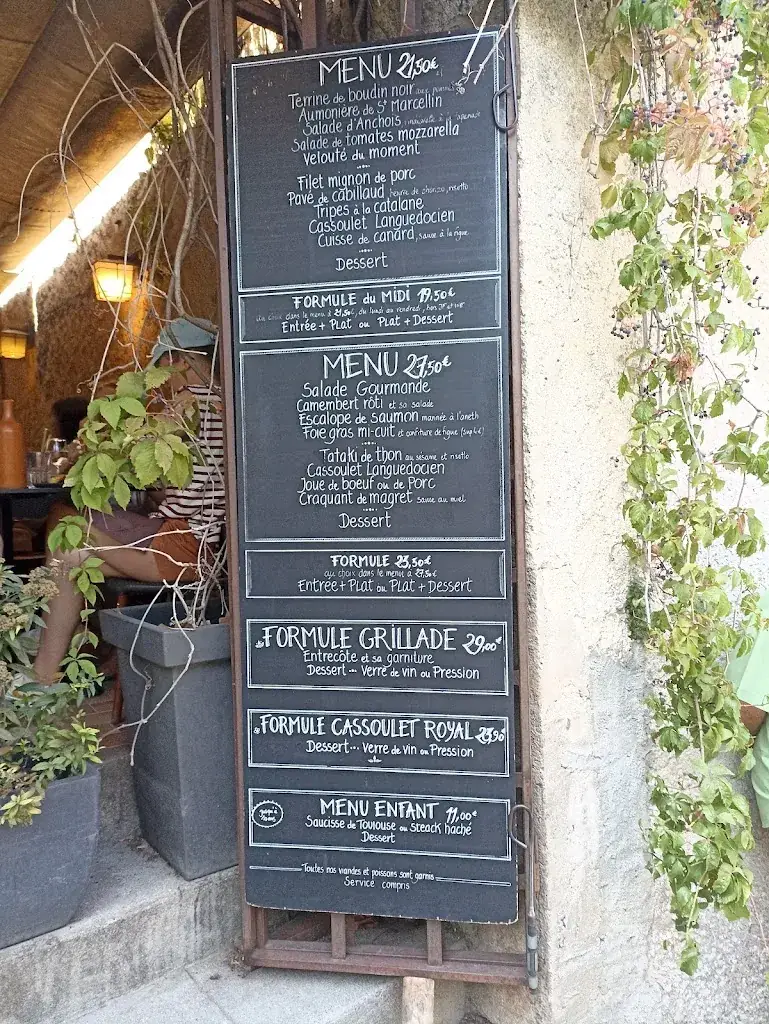 MENU 21,50€
Terrine de boudin noir aux pommes
Aumonière de St Marcellin
Salade d'Anchois à la tapenade
Salade de tomates mozzarella
Velouté du moment
Filet mignon de porc
Pavé de cabillaud risotto
Tripes à la catalane
Cassoulet Languedocien
Cuisse de canard, sauce à la figue
Dessert
FORMULE du MIDI 19,50€
au choix dans le menu à 21,50€, du lundi au vendredi, hors
Entrée + Plat ou Plat + Dessert
MENU 27,50€
Salade Gourmande
Camembert rôti et sa salade
Escalope de saumon marinée à l'aneth
Foie gras mi-cuit et confiture de figue
Tataki de thon au sésame et risotto
Cassoulet Languedocien
Joue de boeuf ou de porc
Craquant de magret sauce au miel
Dessert
FORMULE 23,50€
au choix dans le menu à 27,50€
Entrée + Plat ou Plat + Dessert
FORMULE GRILLADE 29,00€
Entrecôte et sa garniture
Dessert ... Verre de vin ou Pression
FORMULE CASSOULET ROYAL
Dessert ... Verre de vin ou Pression
MENU ENFANT 11,00€
Saucisse de Toulouse ou Steack haché
Dessert
Toutes nos viandes et poissons sont garnis
Service compris